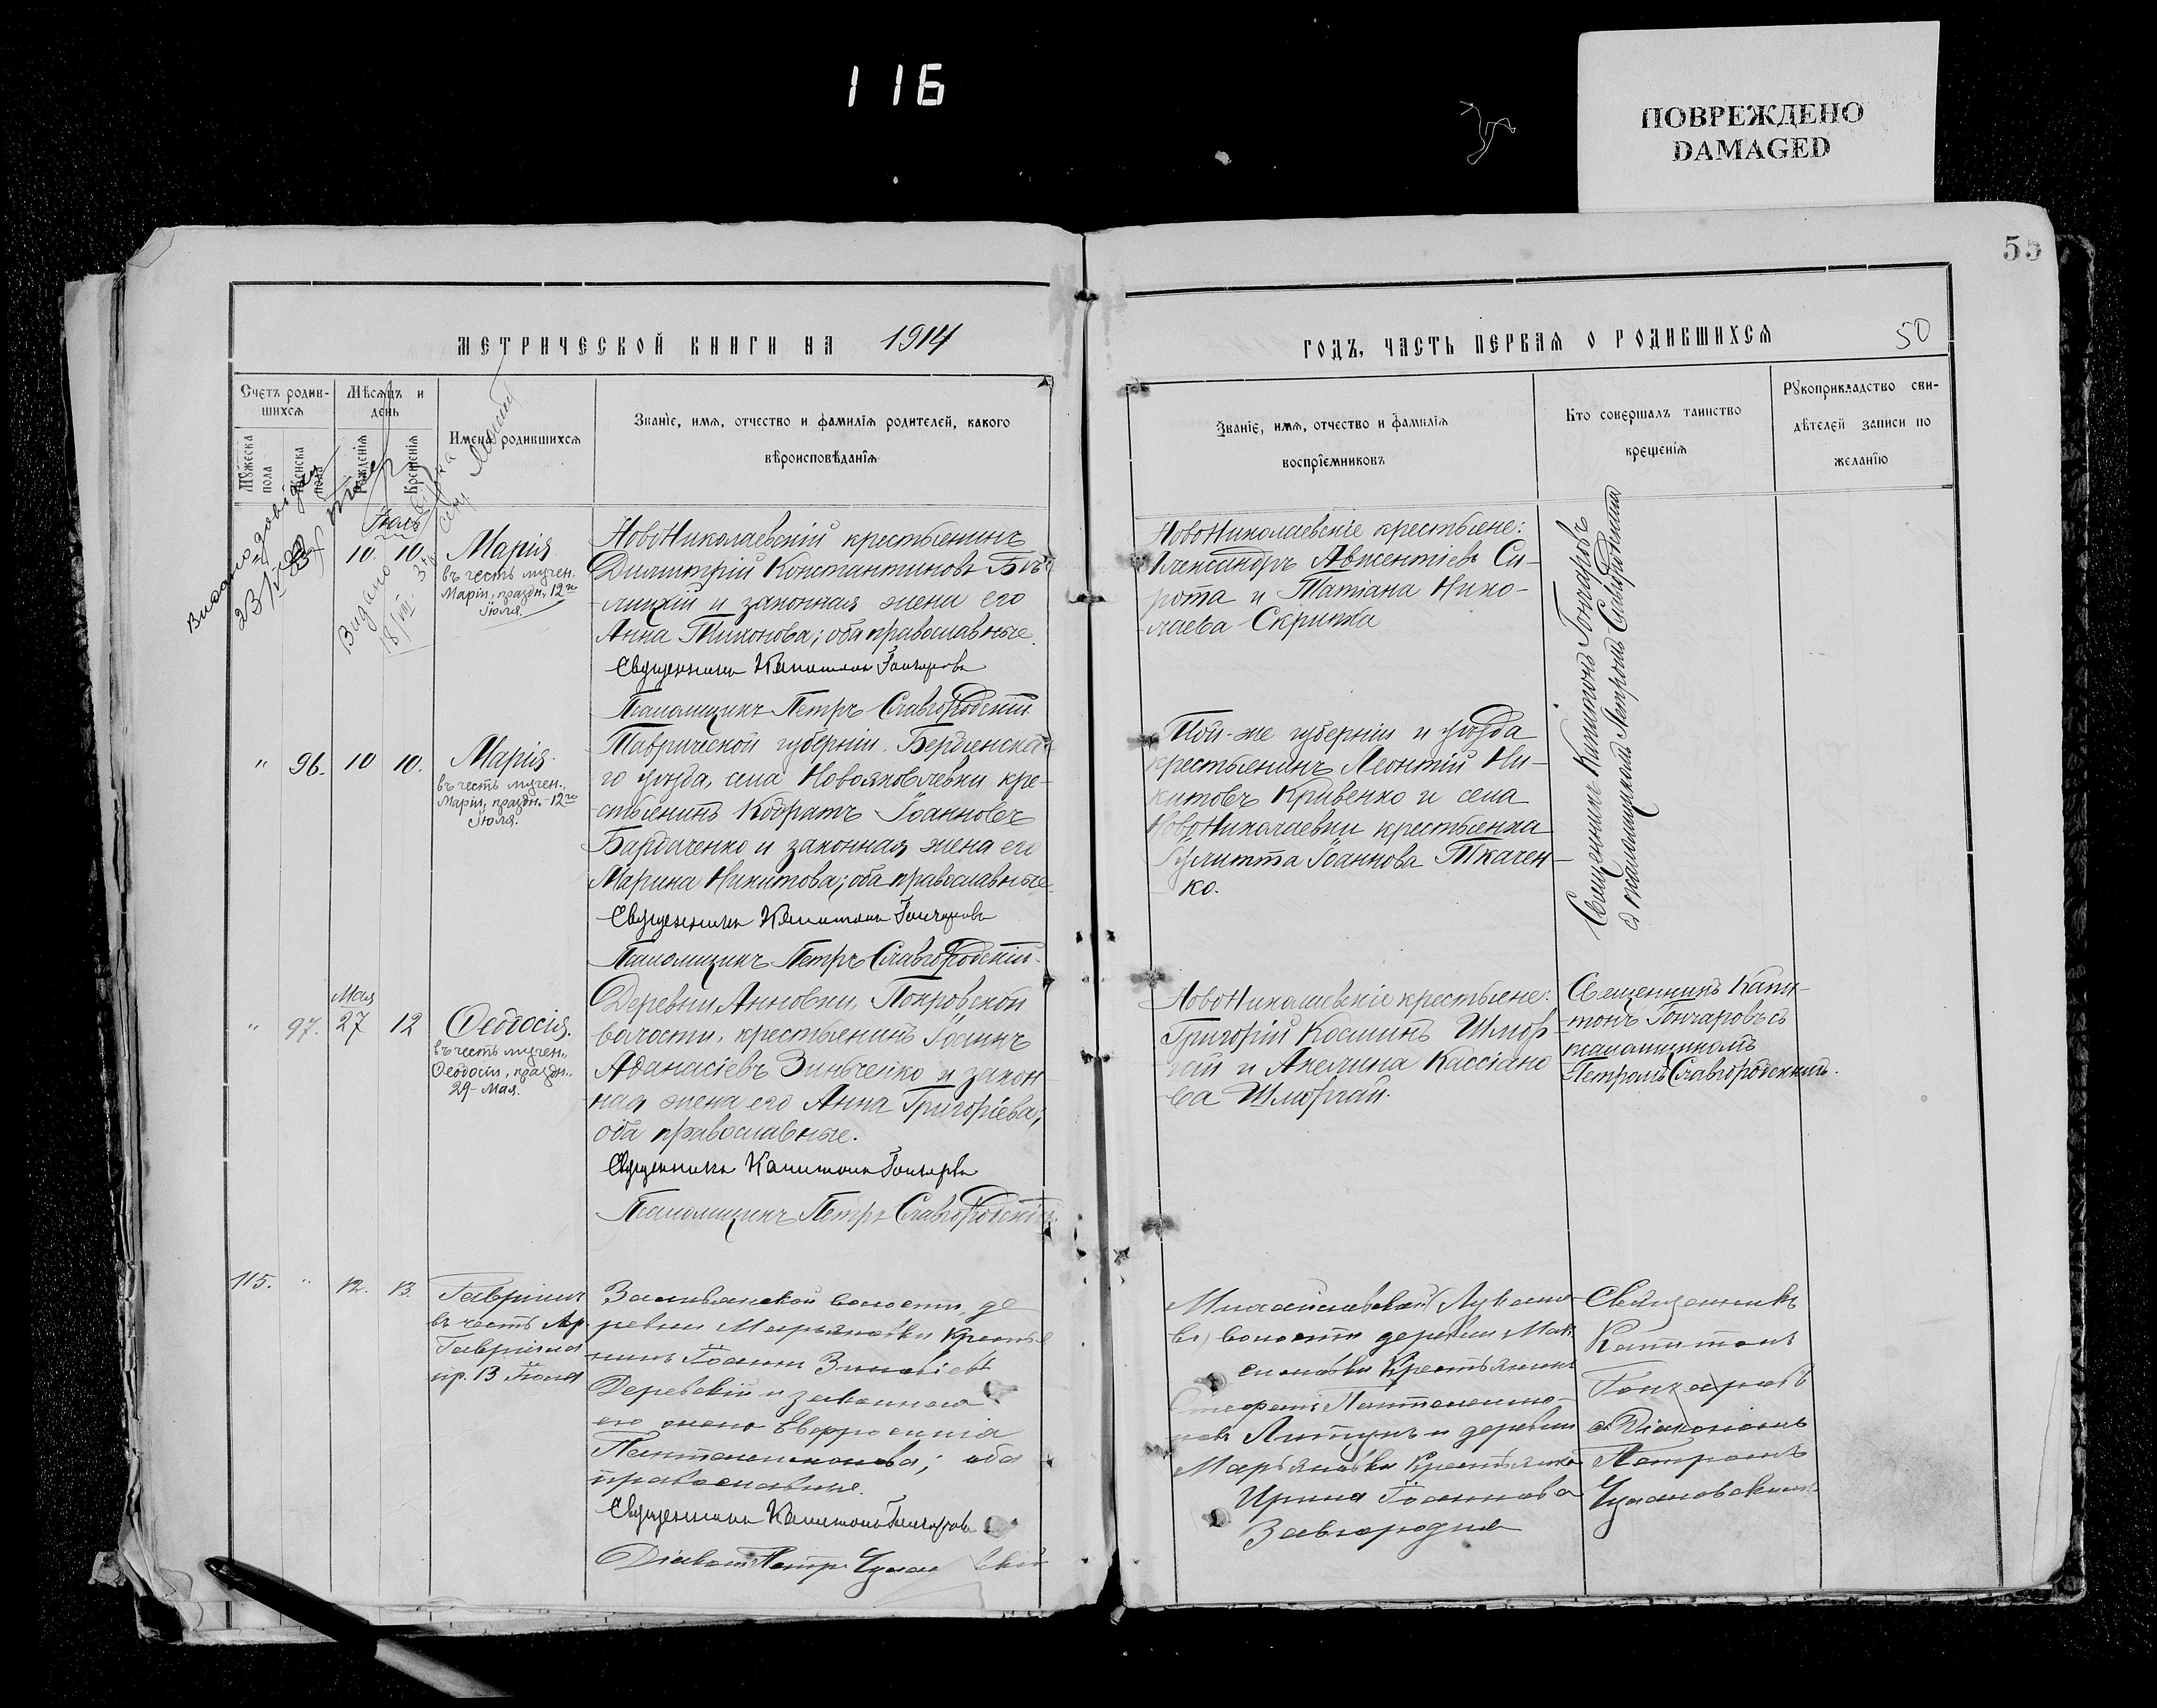 116
ПОВРЕЖДЕНО
DAMAGED
55
МЕТРИЧЕСКОЙ КНИГИ НА 1914
Счетъ родив-
шихся
Мѣсяцъ и
день
Мужеска
пола
Женска
пола
Рожденія
Крещенія
Имена родившихся
Званіе, имя, отчество и фамилія родителей, какого
вѣроисповѣданія
Іюль
10. 10.
Марія
въ честь мучен.
Маріи, праздн. 12го
Іюля.
НовоНиколаевскій крестьянинъ
Димитрій Константиновъ
и законная жена его
Анна Тихонова; оба православные.
Священникъ Капитонъ Гончаровъ
Псаломщикъ Петръ Славгородскій
Видано
18/VIII
23/IV
" 96. 10 10.
Марія
въ честь мучен.,
Маріи, праздн. 12го
Іюля.
Таврической губерніи, Бердянска-
го уѣзда, села Новояковлевки кре-
стьянинъ Кодратъ Іоанновъ
Бардаченко и законная жена его
Марина Никитова; оба православные.
Священникъ Капитонъ Гончаровъ
Псаломщикъ Петръ Славгородскій
Мая
" 97. 27 12
Ѳеодосія.
въ честь мучен.,
Ѳеодосіи, праздн.,
29 Мая.
Деревни Анновки, Покровской
волости, крестьянинъ Іоаннъ
Аѳанасіевъ Зинченко и закон-
ная жена его Анна Григоріева;
оба православные.
Священникъ Капитонъ Гончаровъ
Псаломщикъ Петръ Славгородскій
115. " 12. 13.
Гавріилъ
въ честь Ар.
Гавріила
пр. 13 Іюля
волости, де
ревни Марьяновки кресть
нинъ Іоаннъ Зиновіевъ
Деревскій и законная
его жена Евфросинія
Пантелеимонова; оба
православные.
Священникъ Капитонъ Гончаровъ
Діаконъ Петръ
ГОДЪ, ЧАСТЬ ПЕРВАЯ О РОДИВШИХСЯ
50
Званіе, имя, отчество и фамилія
воспріемниковъ
Кто совершалъ таинство
крещенія
Рукоприкладство сви-
дѣтелей записи по
желанію
НовоНиколаевскіе крестьяне:
Александръ Авксентіевъ Си-
рота и Татіана Нико-
лаева Скрипка
Той-же губерніи и уѣзда
крестьянинъ Леонтій Ни-
китовъ Кривенко и села
НовоНиколаевки крестьянка
Іулитта Іоаннова Ткачен-
ко.
Священникъ Капитонъ Гончаровъ
съ псаломщикомъ Петромъ Славгородскимъ
НовоНиколаевскіе крестьяне:
Григорій Косминъ Шмор
гай и Акелина Кассіано
ва Шморгай.
Священникъ Капи-
тонъ Гончаровъ съ
псаломщикомъ
Петромъ Славгородскимъ.
Михайловской
волости деревни Мак
симовки крестьянинъ
Стефанъ Пантелеимо-
новъ и деревни
Марьяновки крестьянка
Ирина Іоаннова
Завгородня
Священникъ
Капитонъ
Гончаровъ
съ Діакономъ
Петромъ